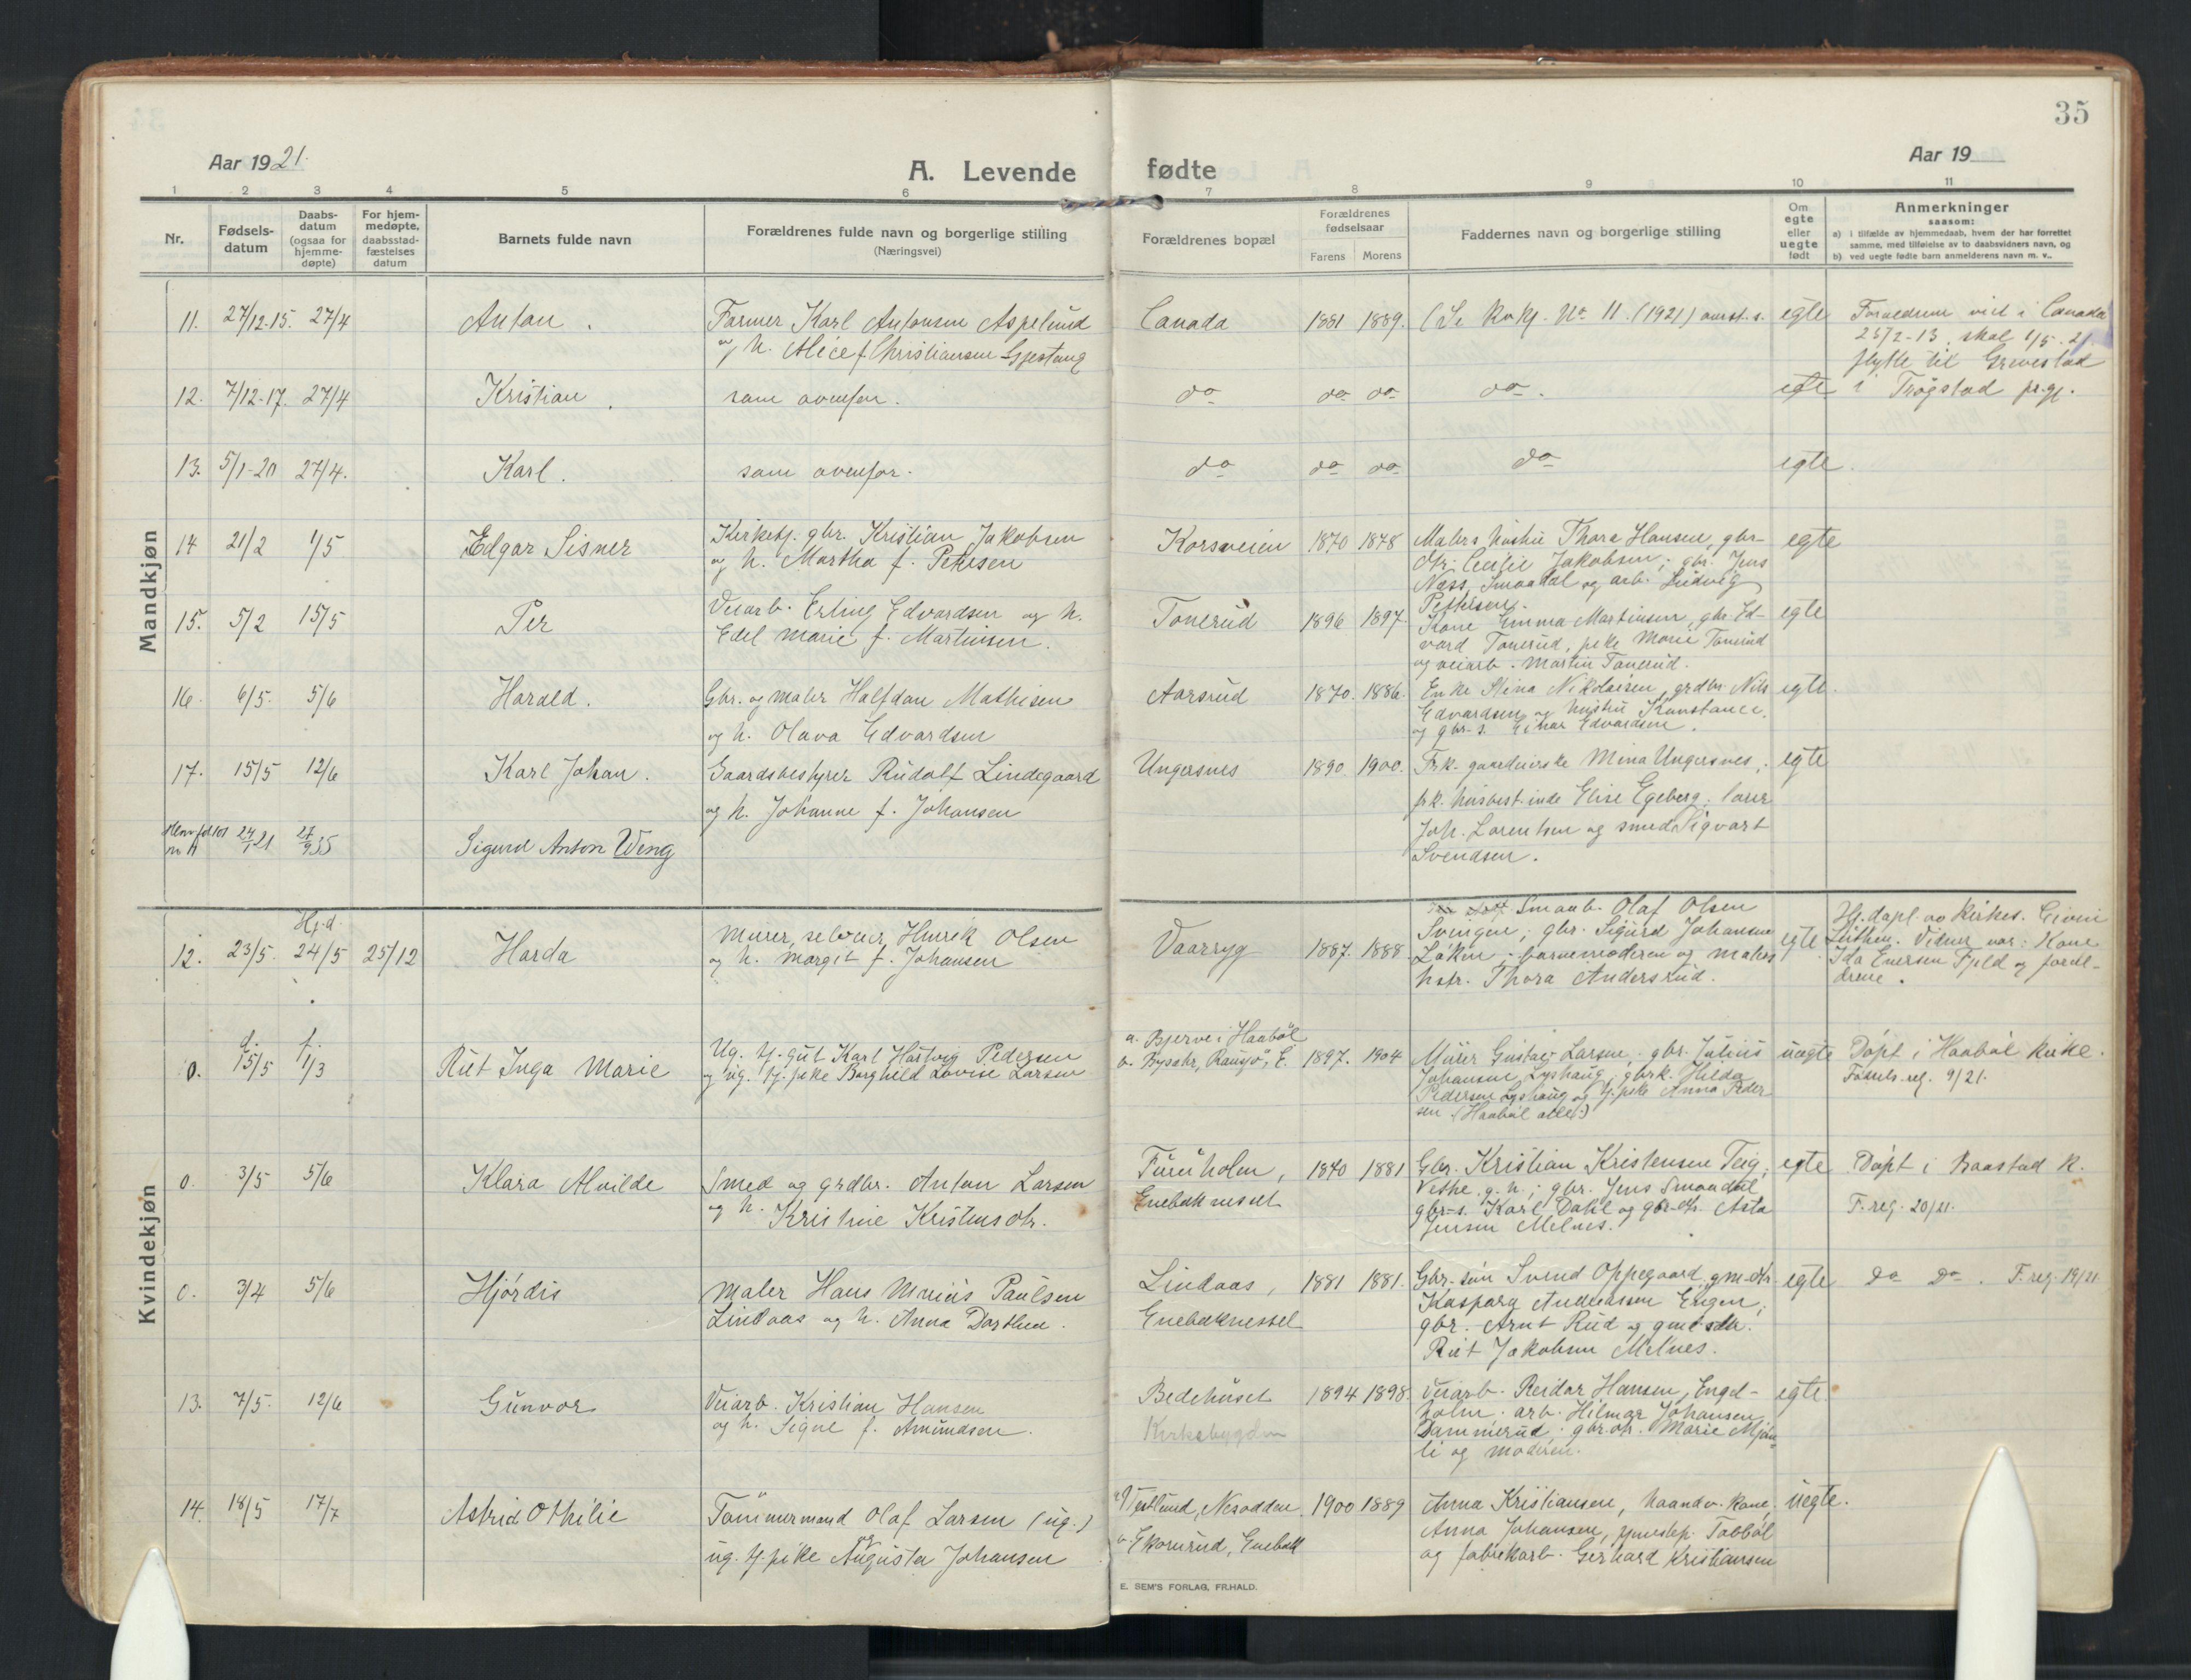 35
Aar 1921.
A. Levende fødte
Aar 19
1 2 3 4 5 6 7 8 9 10 11
Nr.
Fødsels-
datum
Daabs-
datum
(ogsaa for
hjemme-
døpte)
For hjem-
medøpte,
daabsstad-
fæstelses
datum
Barnets fulde navn
Forældrenes fulde navn og borgerlige stilling
(Næringsvei)
Forældrenes bopæl
Forældrenes
fødselsaar
Farens Morens
Faddernes navn og borgerlige stilling
Om
egte
eller
uegte
født
Anmerkninger
saasom:
a) i tilfælde av hjemmedaab, hvem der har forrettet
samme, med tilføielse av to daabsvidners navn, og
b) ved uegte fødte barn anmelderens navn m. v..
Mandkjøn
11. 27/12-15. 27/4 Anton.
Farmer Karl Antonsen Aspelund
og h. Alice f. Christiansen Gjestang
Canada 1881 1889.
(Se Nr 11. (1921)
egte
Foreldrene viet i Canada
25/2-13, skal 1/5. 21.
flytte til Grevestad
i Trøgstad pr.gj.
12. 7/12-17. 27/4 Kristian.
som ovenfor.
do do do do. egte
13. 5/1-20 27/4. Karl.
som ovenfor.
do do do do egte.
14 21/2 1/5 Edgar Sisner
Kirketj. gbr. Kristian Jakobsen
og h. Martha f. Petersen
Korsveien 1870 1878
Malers hustru Thora Hansen, gbr-
dtr. Cecilie Jakobsen; gbr. Jens
Næss, Smaadal og arb. Ludvig
Pettersen.
egte
15. 5/2 15/5 Per
Veiarb. Erling Edvardsen og h.
Edel Marie f. Martinsen.
Tonerud 1896 1897.
Kone Emma Martinsen, gbr. Ed-
vard Tonerud, pike Marie Tonerud
og veiarb. Martin Tonerud.
egte
16. 6/5. 5/6 Harald.
Gbr. og maler Halfdan Mathisen
og h. Olava Edvardsen
Aarsrud 1870. 1886.
Enke Stina Nikolaisen, grdbr. Nils
Edvardsen og hustru Konstance,
og gbr-s. Einar Edvardsen.
egte.
17. 15/5 12/6 Karl Johan.
Gaardsbestyrer Rudolf Lindegaard
og h. Johanne f. Johansen
Ungersnes 1890. 1900.
Frk. gaardeierske Mina Ungersnes,
frk. husbest.inde Elise Egeberg;
Joh. Lorentsen og smed Sigvart
Svendsen.
egte
24/1 21 27/9 35 Sigurd Anton Weng
Kvindekjøn
Hj.d.
12. 23/5. 24/5 25/12 Harda
Murer, selveier, Henrik Olsen
og h. Margit f. Johansen
Vaarryg 1887. 1888.
Smaab. Olaf Olsen
Svingen; gbr. Sigurd Johansen
Løken; barnemoderen og malers
hstr. Thora Andersrud.
egte
Hj.døpt av kirkes.
Vidner var: Kone
Ida Evensen Fjeld og foræl-
drene.
d. f.
0. 15/5 1/3 Rut Inga Marie
Ug. tj.gut Karl Hartvig Pedersen
og ug. tj.pike Borghild Lovise Larsen
a. Bjerve i Haabøl
b. Bysætr, Rausjø, E. 1897. 1904
Murer Gustav Larsen; gbr. Julius
Johansen Lyshaug; gbrk. Hilda
Pedersen Lyshaug og tj.pike Anna Peder
sen (Haabøl alle)
uegte
Døpt i Haabøl kirke.
Fødsels-reg. 9/21.
0. 3/5 5/6 Klara Alvilde
Smed og grdbr. Anton Larsen
og h. Kristine Kristensdtr.
Furuholm,
Enebaknesset
1840 1881
Gbr. Kristian Kristensen Teig;
gbr. Jens Smaadal
gbr-s. Karl Dahl og gbr-dtr. Asta
Jensen Melnes.
egte
Døpt i Baastad k.
F. reg. 20/21.
0. 3/4 5/6 Hjørdis
Maler Hans Marius Paulsen
Lindaas og h. Anna Dorthea.
Lindaas,
Enebaknesset
1881 1881.
Gbr. søn Svend Oppegaard, gm-dtr
Kaspara Andreassen Engen;
gbr. Arnt Rud og
Rut Jakobsen Melnes.
egte
do do. F. reg. 19/21.
13. 7/5. 12/6 Gunvor
Veiarb. Kristian Hansen
og h. Signe f. Amundsen.
Bedehuset
Kirkebygden
1894 1898.
Veiarb. Reidar Hansen, Engel-
holm; arb. Hilmar Johansen
Dammerud; gbr.dtr. Marie Mjøn-
li og moderen.
egte.
14. 18/5 17/7 Astrid Othilie
Tømmermand Olaf Larsen (ug.)
og
ug. tj.pike Augusta Johansen
a. Vestlund, Nesodden.
b. Ekornrud, Enebakk
1900 1889
Anna Kristiansen, haandv. kone,
Anna Johansen, Tobbøl
og fabrikarb. Gerhard Kristiansen
uegte.
E. SEM'S FORLAG, FR.HALD.